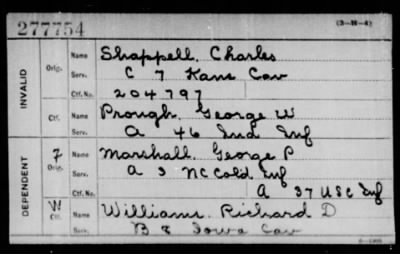 277754 (3-H-4)
INVALID
Orig. Name Shappell, Charles
Serv. C 7 Kans Cav
Ctf. No. 204797
Ctf. Name Prough, George W
Serv. A 46 Ind Inf
DEPENDENT
7 Orig. Name Marshall, George P
Serv. A 3 NC Cold Inf
Ctf. No. A 37 USC Inf
W Ctf. Name Williams, Richard D
Serv. B 8 Iowa Cav